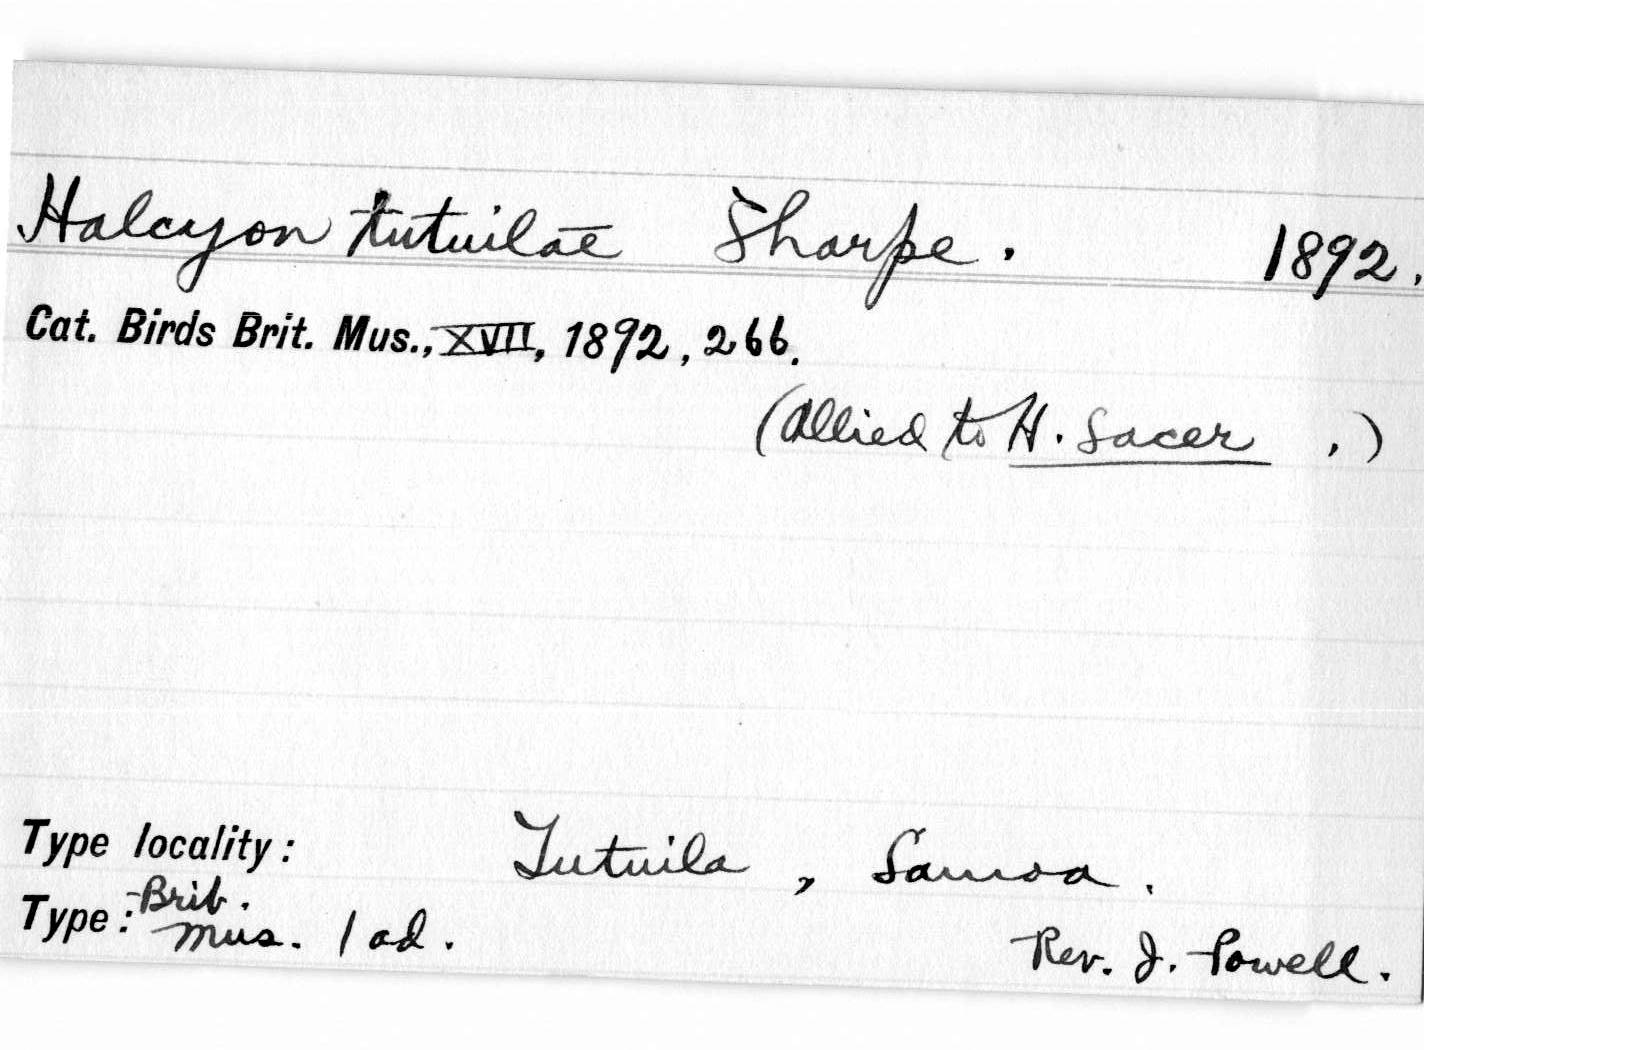 Halcyon tutuilae Sharpe. 1892.
Cat. Birds Brit. Mus., XVII, 1892, 266.
(Allied to H. sacer .)
Type locality: Tutuila, Samoa.
Type: Brit. Mus. 1 ad. Rev. J. Powell.